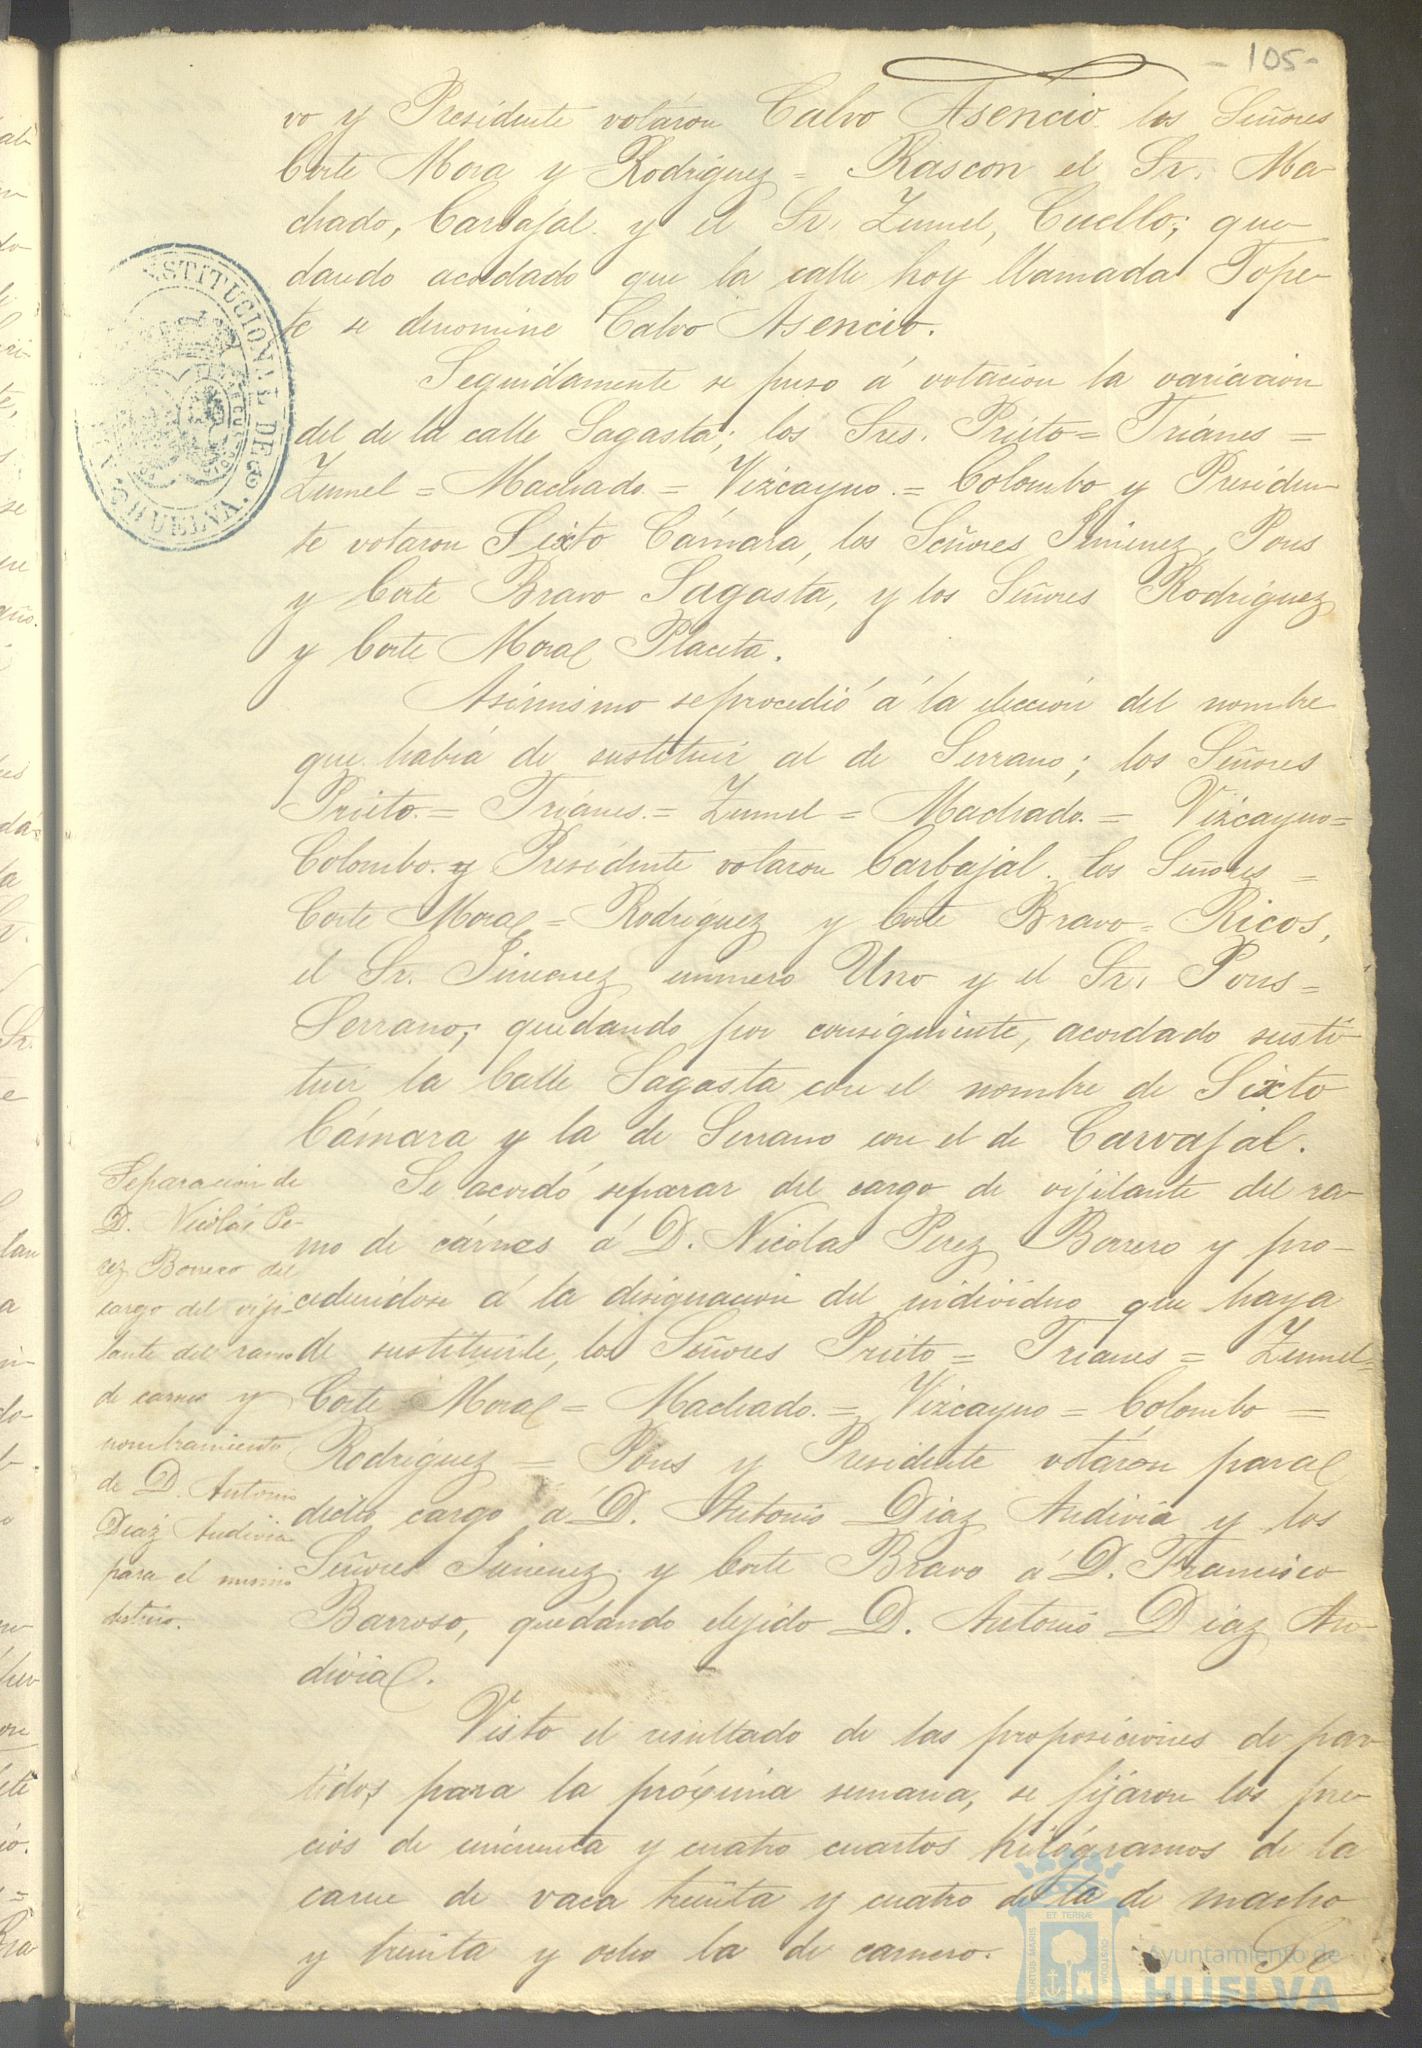 - 105 -
vo y Presidente votáron Calvo Asencio los Señores
Corte Mora y Rodriguez = Rascon el Sr. Ma-
chado, Carbajal. y el Sr. Zumel, Cuello; que-
dando acordado que la calle hoy llamada Tope-
te se denomine Calvo Asencio.
Seguidamente se puso á votacion la variacion
del de la calle Sagasta; los Sres. Prieto = Trianes =
Zumel = Machado. = Vizcayno. = Colombo y Presiden-
te votaron Sixto Cámara, los Señores Jimenez, Pons
y Corte Bravo Sagasta, y los Señores Rodriguez
y Corte Moral Placeta.
Asimismo se procedió á la eleccion del nombre
que habia de sustituir al de Serrano; los Señores
Prieto. = Trianes. = Zumel = Machado. = Vizcayno =
Colombo. y Presidente votaron Carbajal. los Señores =
Corte Moral = Rodriguez y Corte Bravo = Ricos,
el Sr. Jimenez número Uno y el Sr. Pons =
Serrano; quedando por consiguiente, acordado susti-
tuir la Calle Sagasta con el nombre de Sixto
Cámara y la de Serrano con el de Carvajal.
Se acordó separar del cargo de vijilante del ra-
mo de cárnes á D. Nicolas Perez Borrero y pro-
cediendose á la designacion del individuo que haya
de sustituirle, los Señores Prieto = Trianes = Zumel =
Corte Moral = Machado. = Vizcayno = Colombo =
Rodriguez = Pons y Presidente votáron para
dicho cargo á D. Antonio Diaz Andivia y los
Señores Jimenez y Corte Bravo á D. Francisco
Barroso, quedando elejido D. Antonio Diaz An-
divia.
Visto el resultado de las proposiciones de par-
tidos para la próxima semana, se fijaron los pre-
cios de cincuenta y cuatro cuartos kilógramos de la
carne de vaca treinta y cuatro de la de macho
y treinta y ocho la de carnero.
Se
Separacion de
D. Nicolás Pe-
rez Borrero del
cargo del viji-
lante del ramo
de carnes y
nombramiento
de D. Antonio
Diaz Andivia
para el mismo
destino.
CONSTITUCIONAL DE
HUELVA
PORTUS MARIS
ET TERRÆ
CUSTODIA
Ayuntamiento de
HUELVA